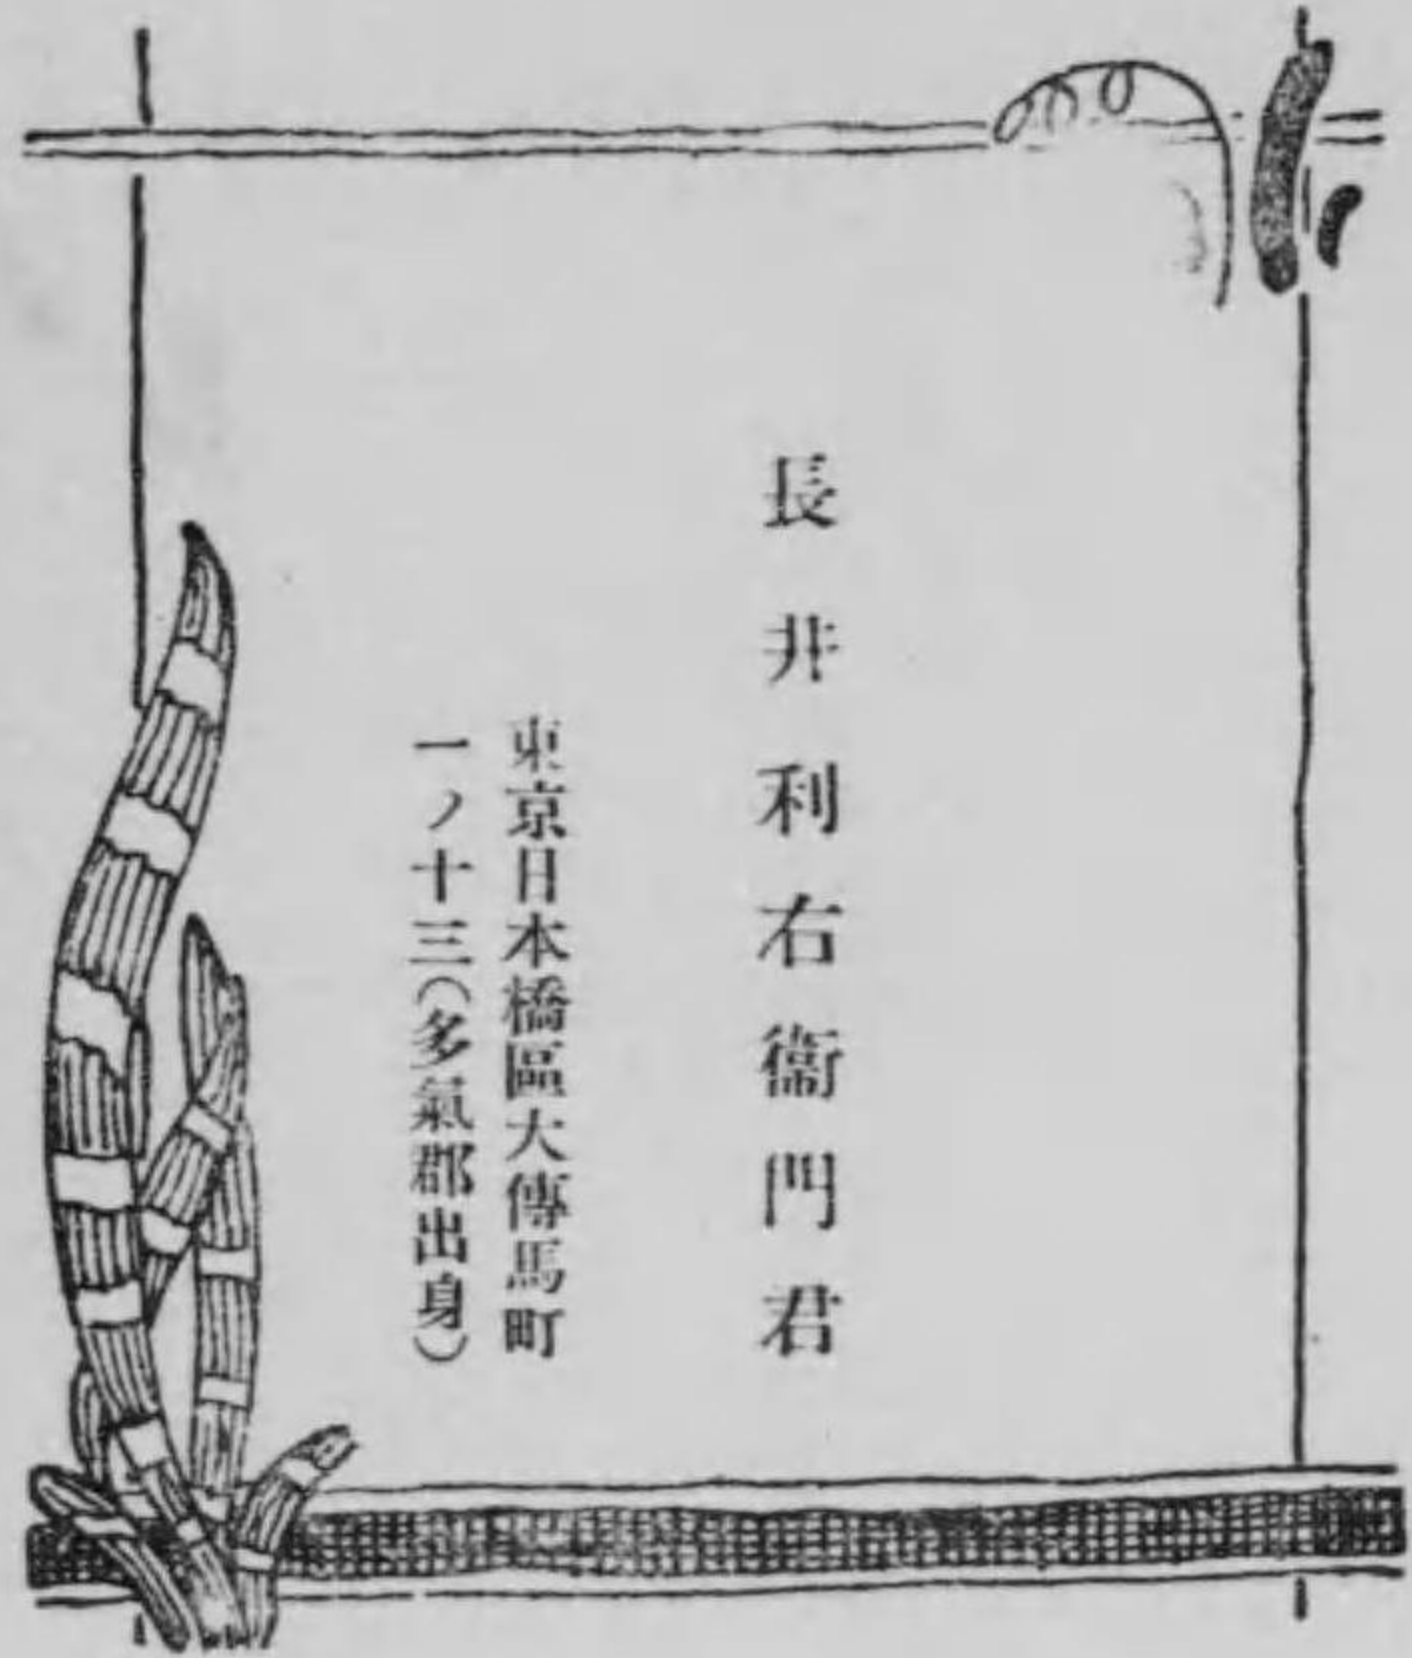 長井利右衞門君
東京日本橋區大傳馬町
一ノ十三(多氣郡出身)